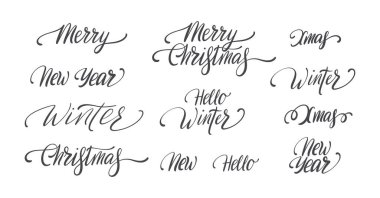 Merry
New Year
Winter
Christmas
Merry
Christmas
Hello
Winter
New
Hello
Xmas
Winter
Xmas
New
Year